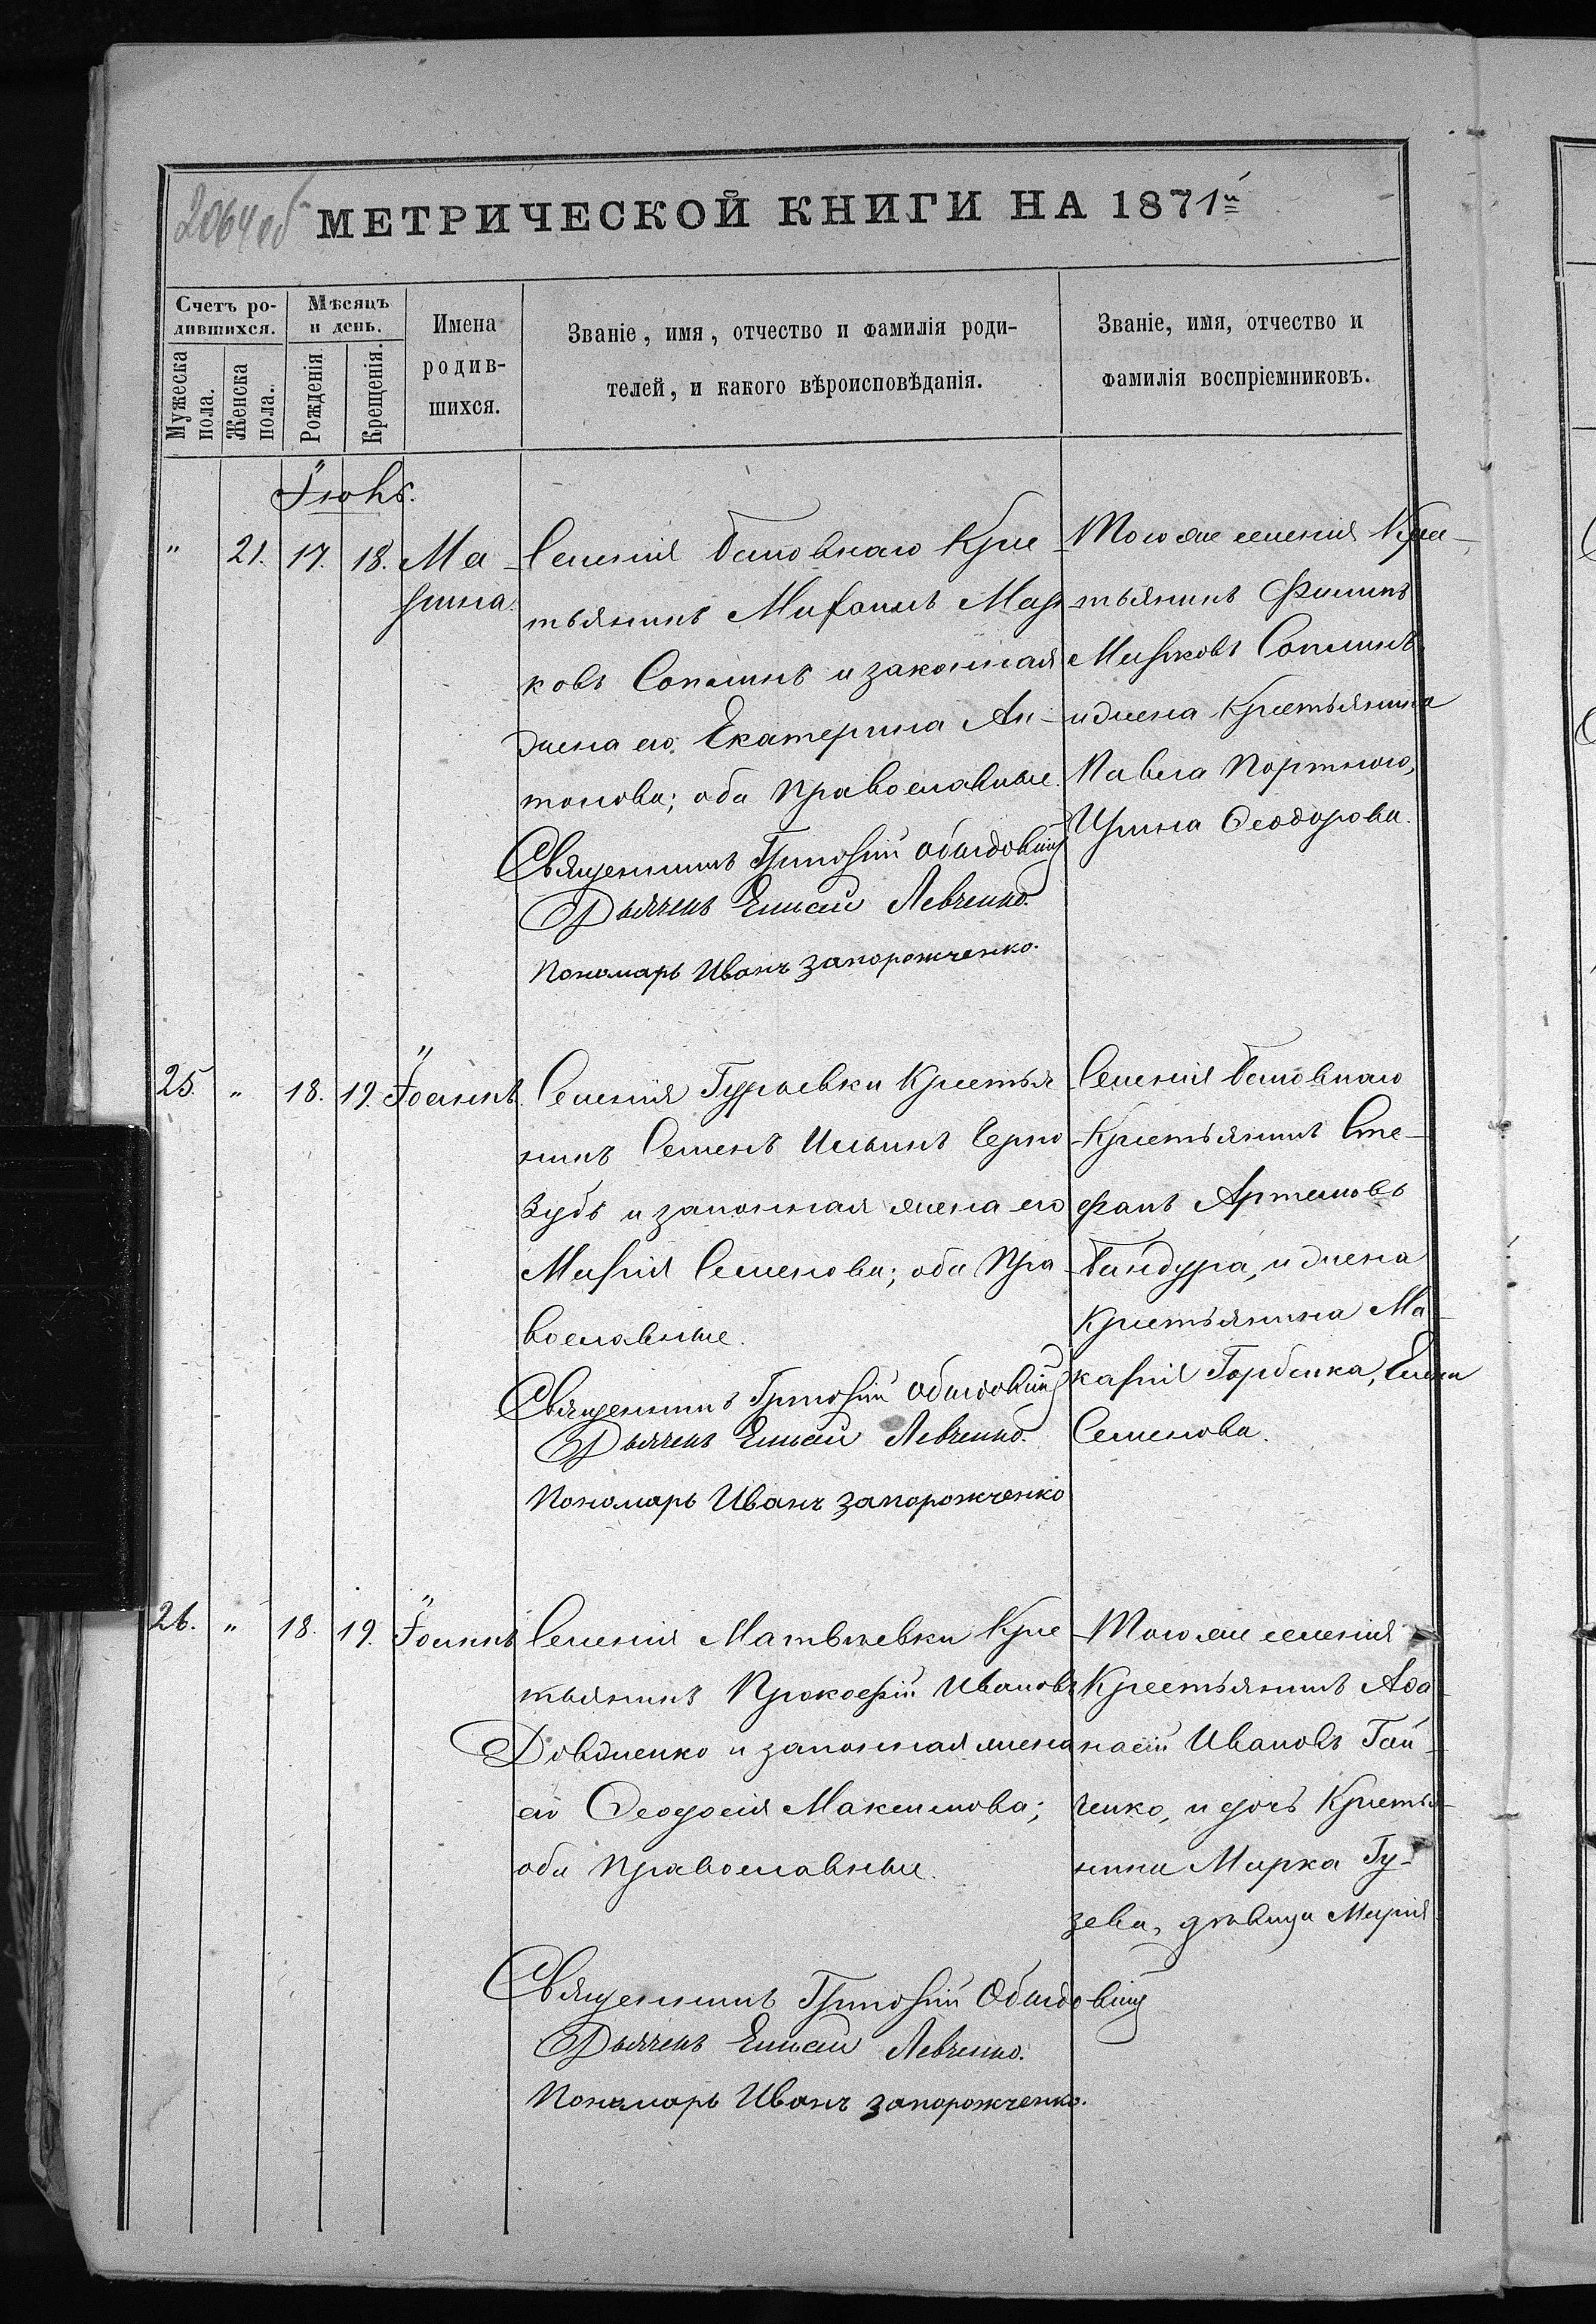 2064 об
МЕТРИЧЕСКОЙ КНИГИ НА 1871й
Счетъ ро-
дившихся.
Мѣсяцъ
и день.
Мужеска
пола.
Женска
пола.
Рожденія
Крещенія.
Имена
родив-
шихся.
Званіе, имя, отчество и фамилія роди-
телей, и какого вѣроисповѣданія.
Званіе, имя, отчество и
фамилія воспріемниковъ.
Іюнь.
" 21. 17. 18. Ма-
рина.
Селенія Крес
тьянинъ Михаилъ Мар
ковъ и законная
жена его Екатерина Ан-
тонова; оба Православные.
Священникъ Григорій
Дьячекъ Елисей Левченко.
Пономарь Иванъ Запорожченко.
Того же селенія Крес-
тьянинъ Филипъ
Марковъ
и жена Крестьянина
Павла Портного,
Ирина Ѳеодорова.
25. " 18. 19. Іоаннъ.
Селенія Гурьевки Крестья
нинъ Семенъ Ильинъ Черно
зубъ и законная жена его
Марія Семенова; оба Пра
вославные.
Священникъ Григорій
Дьячекъ Елисей Левченко.
Пономарь Иванъ Запорожченко
Селенія
Крестьянинъ Сте-
фанъ Артемовъ
Бандура, и жена
Крестьянина Ма-
карія Горбенка, Елена
Семенова.
26. " 18. 19. Іоаннъ
Селенія Матвѣевки Крес
тьянинъ Прокофій Ивановъ
Довженко и законная жена
его Ѳеодосія Максимова;
оба Православные.
Священникъ Григорій
Дьячекъ Елисей Левченко.
Пономарь Иванъ Запорожченко.
Того же селенія
Крестьянинъ Аѳа-
насій Ивановъ Гай-
ченко, и дочь Крестья-
нина Марка Гу-
зева, дѣвица Марія.